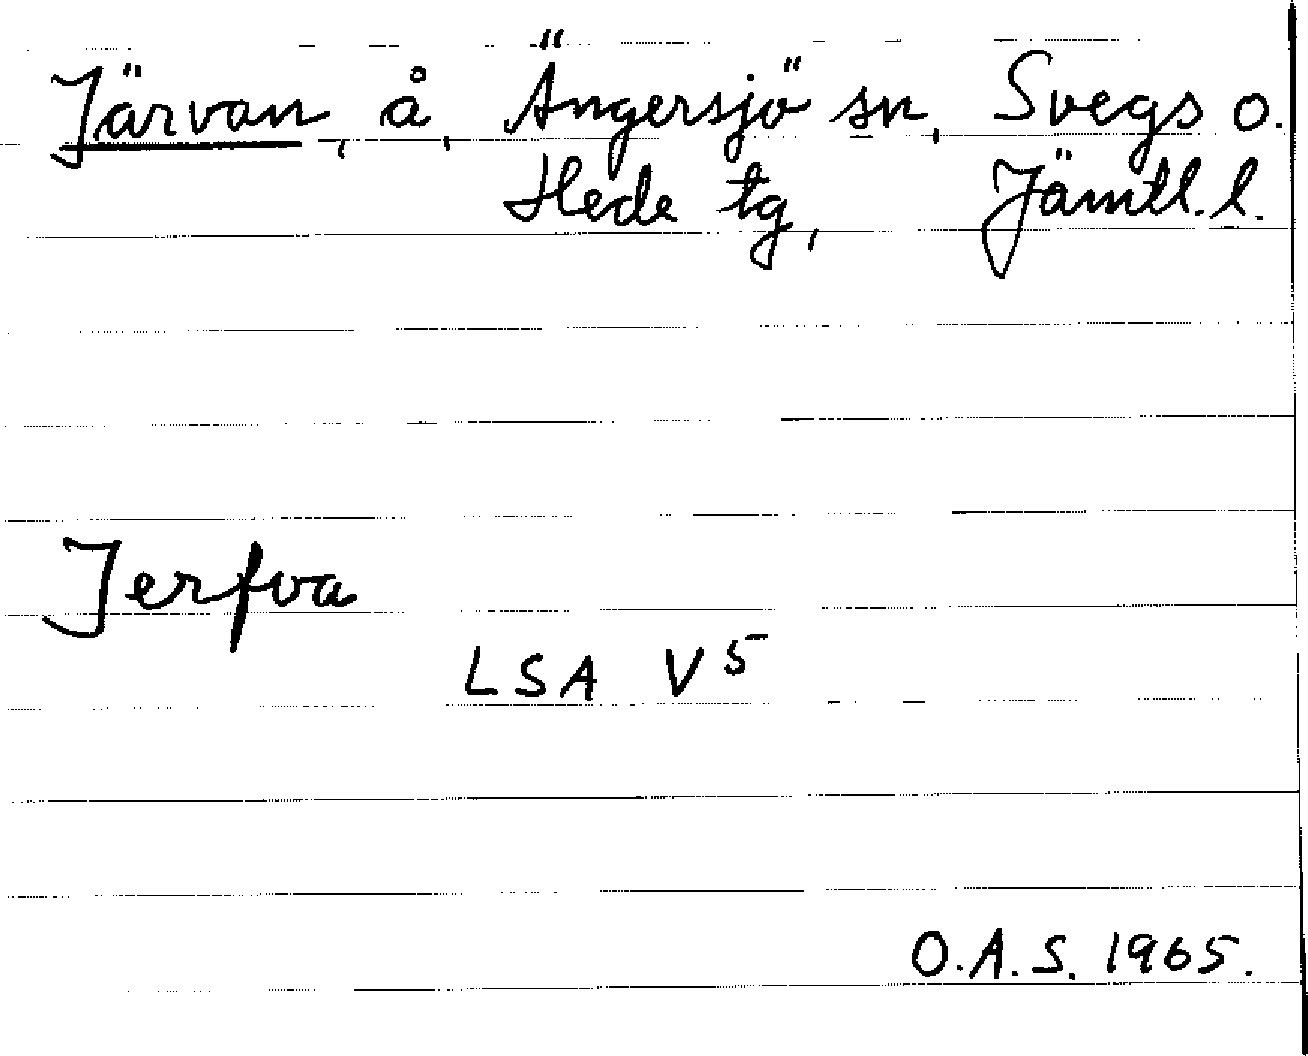 Järvan, å, Ängersjö sn, Svegs o.
Hede tg, Jämtl. l.
Jerfva
LSA V5
O.A.S. 1965.